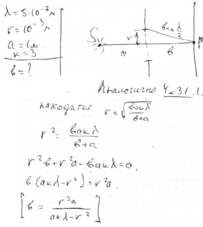 λ = 5·10⁻⁷ м
r = 10⁻³ м
a = 1 м
k = 3
b = ?
S
r
a
b
P
Аналогично 4.31.1.
находится r = √(bakλ/(b+a))
r² = bakλ/(b+a)
r²b + r²a - bakλ = 0.
b(akλ - r²) = r²a.
[b = r²a/(akλ - r²)